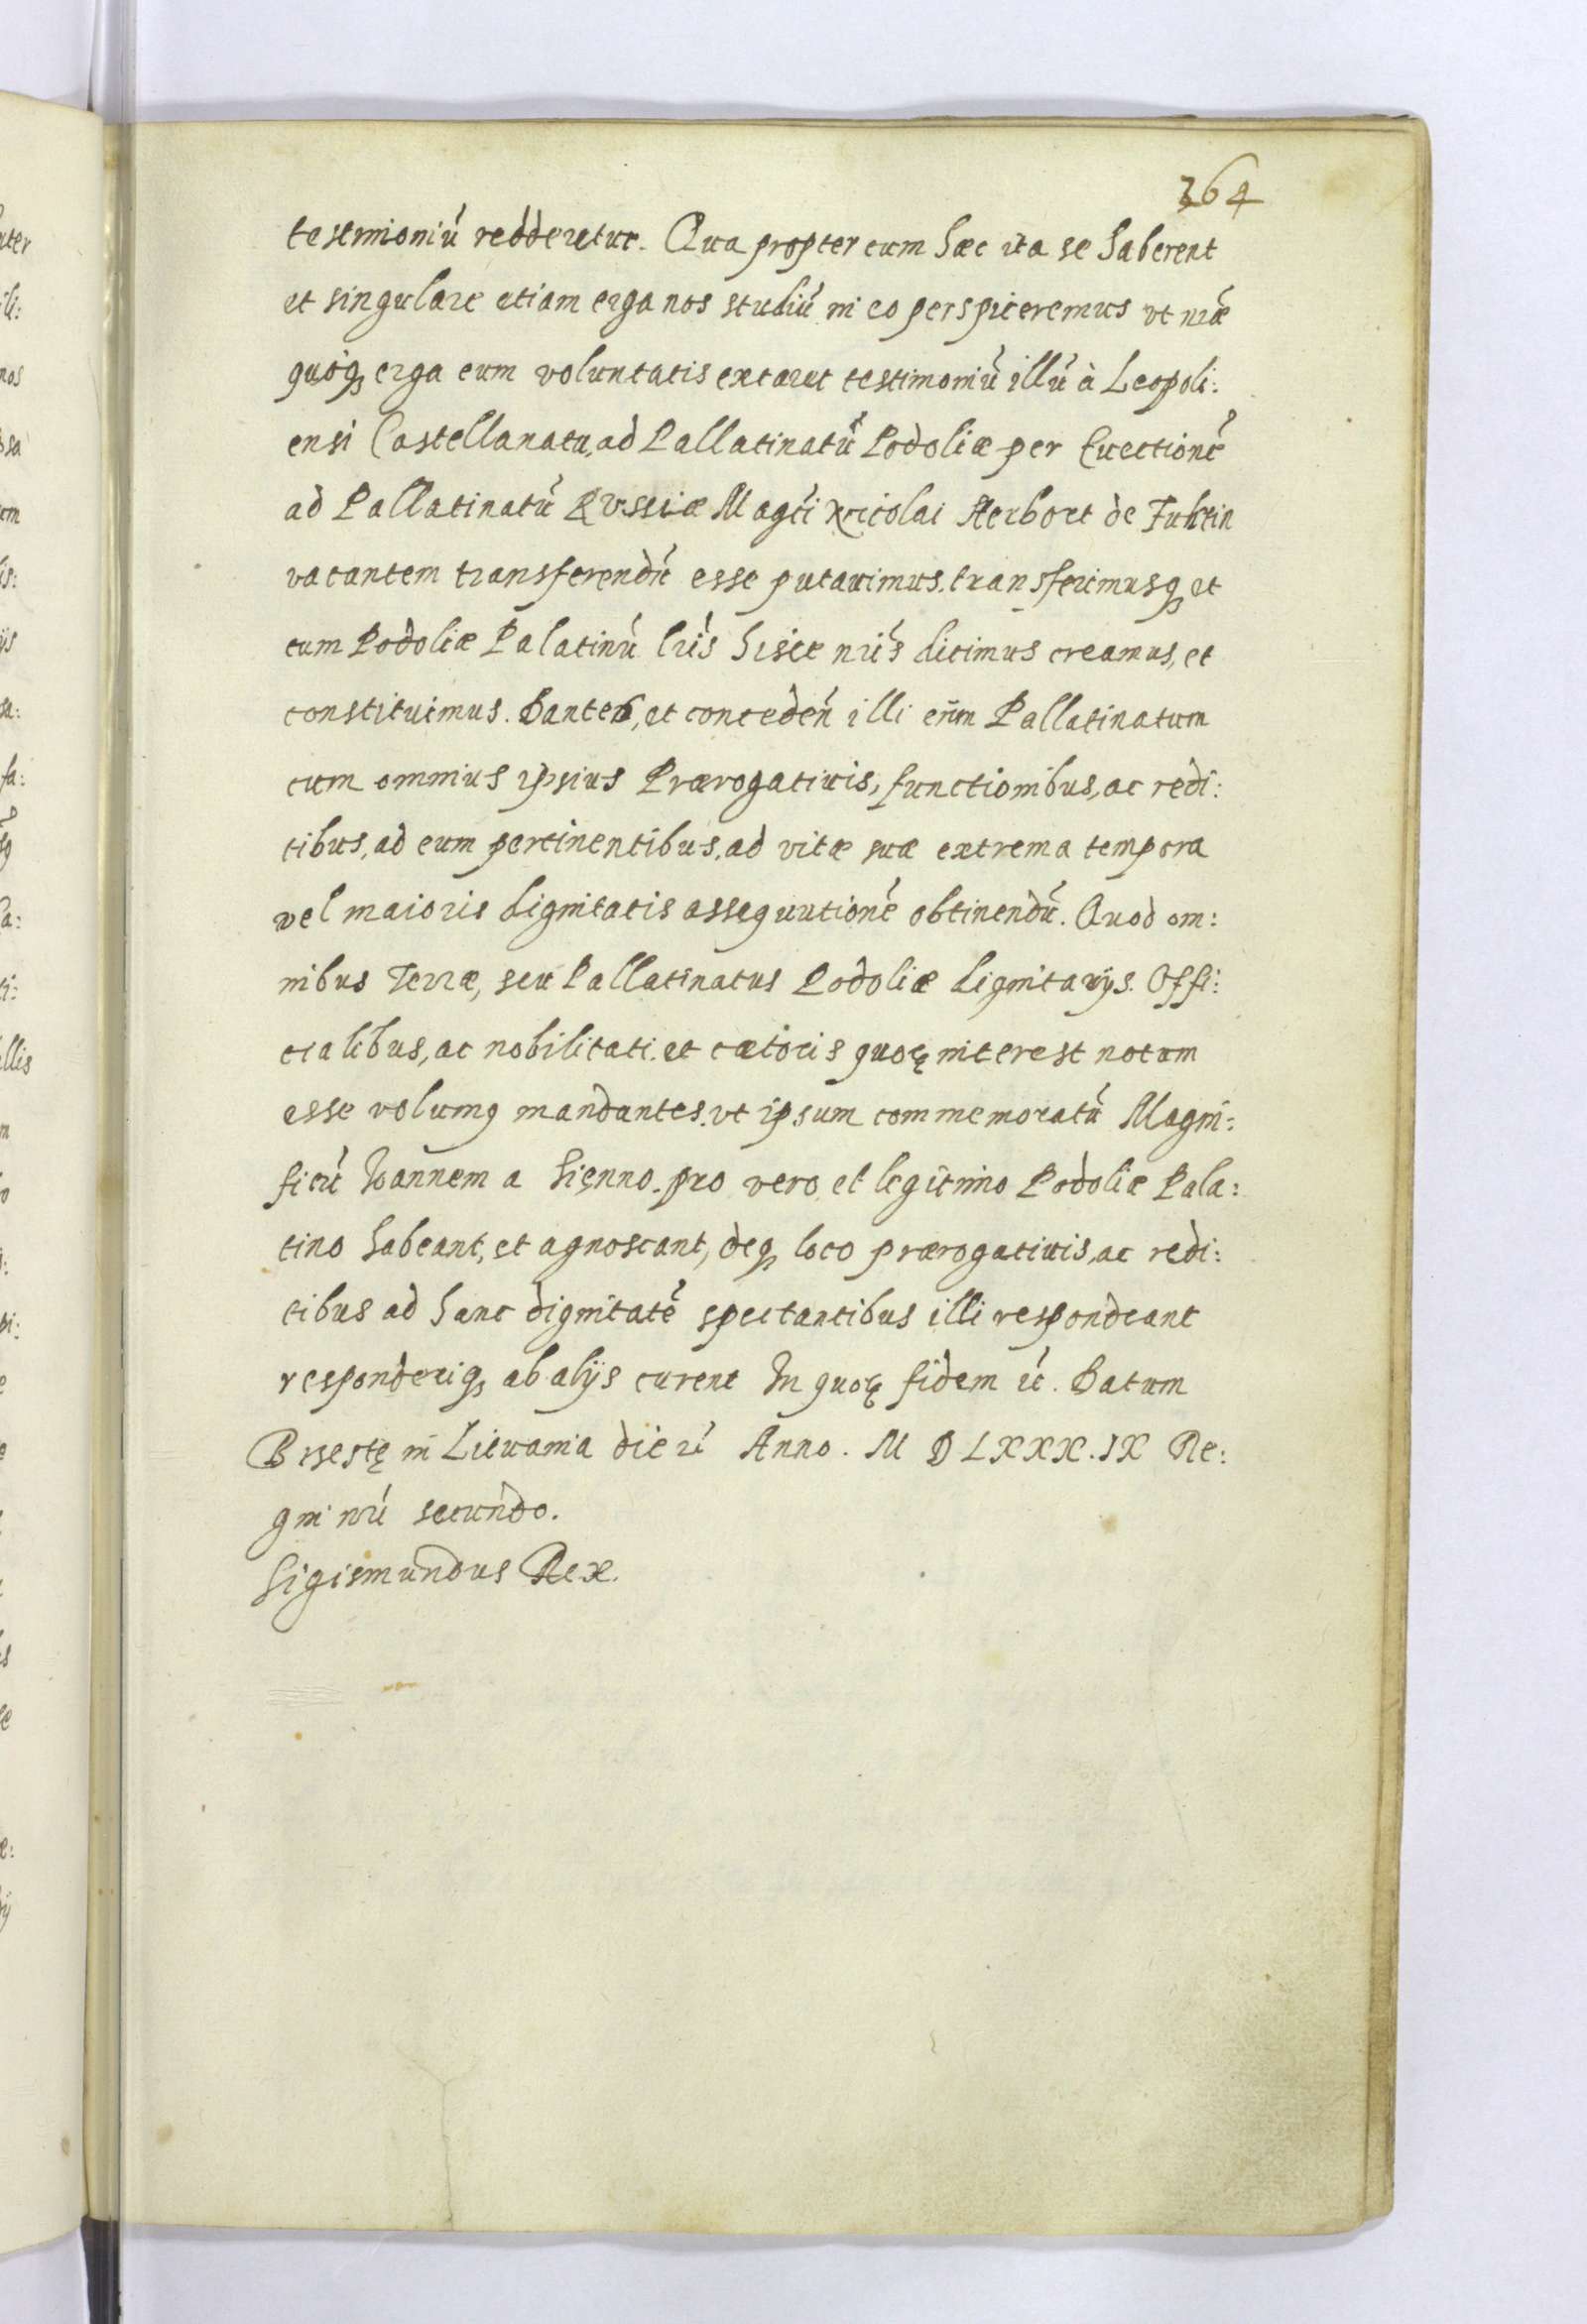 364
testimoniú redderetur. Qua propter cum hæc ita se haberent
et singulare etiam erga nos studiú in eo perspiceremus vt nræ
quoq erga eum voluntatis extaret testimoniú illú à Leopoli:
ensi Castellanatu, ad Pallatinatú Podoliæ per Euectioné
ad Pallatinatú Russiæ Magci Nicolai Herbort de Fulstin
vacantem transferendú esse putauimus, transferimusq et
eum Podoliæ Palatinú lris hisce nris dicimus creamus, et
constituimus. Dantes, et conceden illi eum Pallatinatum
cum omnius ipsius Prærogatiuis, functionibus, ac redi:
tibus, ad eum pertinentibus, ad vitæ suæ extrema tempora
vel maioris dignitatis assequutioné obtinendú. Quod om:
nibus Terræ, seu Pallatinatus Podoliæ dignitarijs. Offi:
cialibus, ac nobilitati. et cæteris quoꝝ interest notum
esse volumq mandantes. vt ipsum commemoratú Magni:
ficú Ioannem a Sienno. pro vero et legitimo Podoliæ Pala:
tino habeant, et agnoscant, deq loco prærogatiuis, ac redi:
tibus ad hanc dignitaté spectantibus illi respondeant
responderiq ab alijs curent In quoꝝ fidem Datum
Brzestę in Lituania die Anno. M D LXXX.IX Re:
gni nri secundo.
Sigismundus Rex.